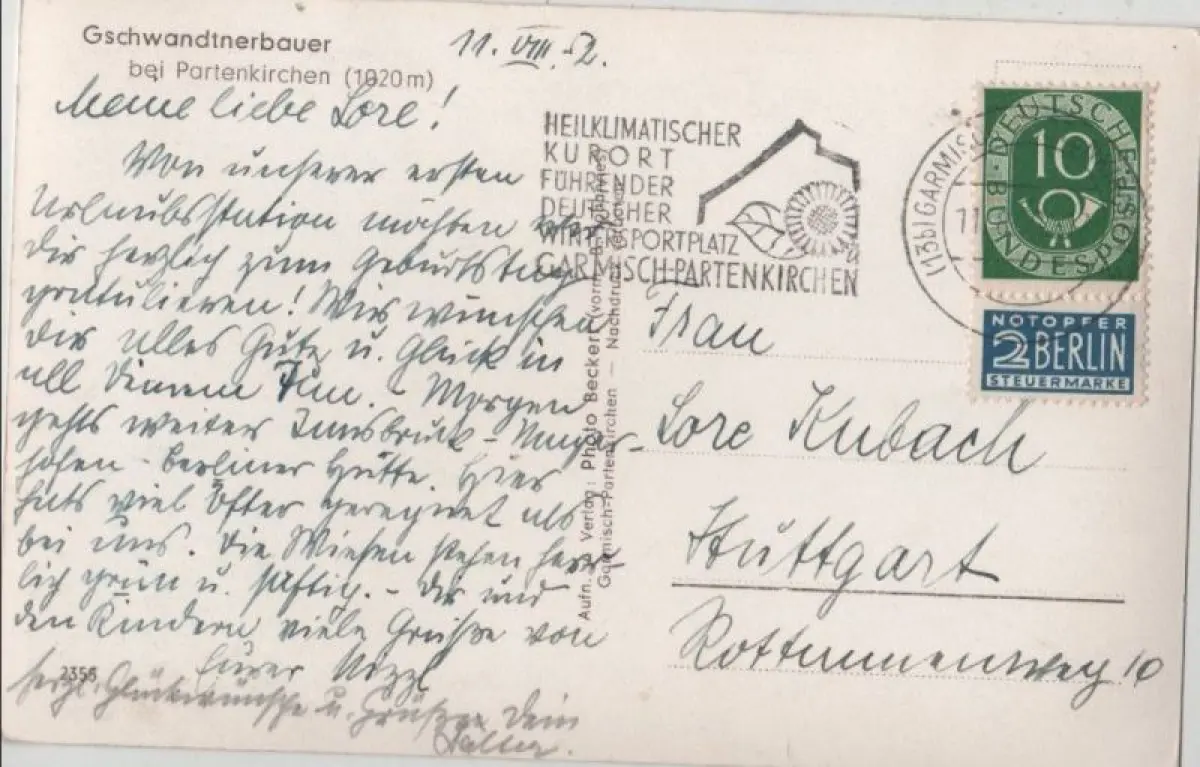 Gschwandtnerbauer
bei Partenkirchen (1020m)
11. VIII. 52.
Meine liebe Lore!
Von unserer ersten
Urlaubsstation möchten wir
Dir herzlich zum Geburtstag
gratulieren! Wir wünschen
Dir alles Gute u. Glück in
all Deinem Tun. - Morgen
gehts weiter Innsbruck - Mayer-
hofen - Berliner Hütte. Hier
hats viel öfter geregnet als
bei uns. Die Wiesen stehen herr-
lich grün u. saftig. - Dir und
den Kindern viele Grüße von
Eurer
2358
herzl. Glückwünsche u. Grüße Dein
Walter.
Aufn. u. Verlag: Photo Beckert (vorm. B. Johannes)
Garmisch-Partenkirchen — Nachdruck verboten
HEILKLIMATISCHER
KURORT
FÜHRENDER
DEUTSCHER
WINTERSPORTPLATZ
GARMISCH-PARTENKIRCHEN
a
(13b) GARMISCH
11
DEUTSCHE BUNDESPOST
10
NOTOPFER
2 BERLIN
STEUERMARKE
Frau
Lore Kubach
Stuttgart
Rottannenweg 10